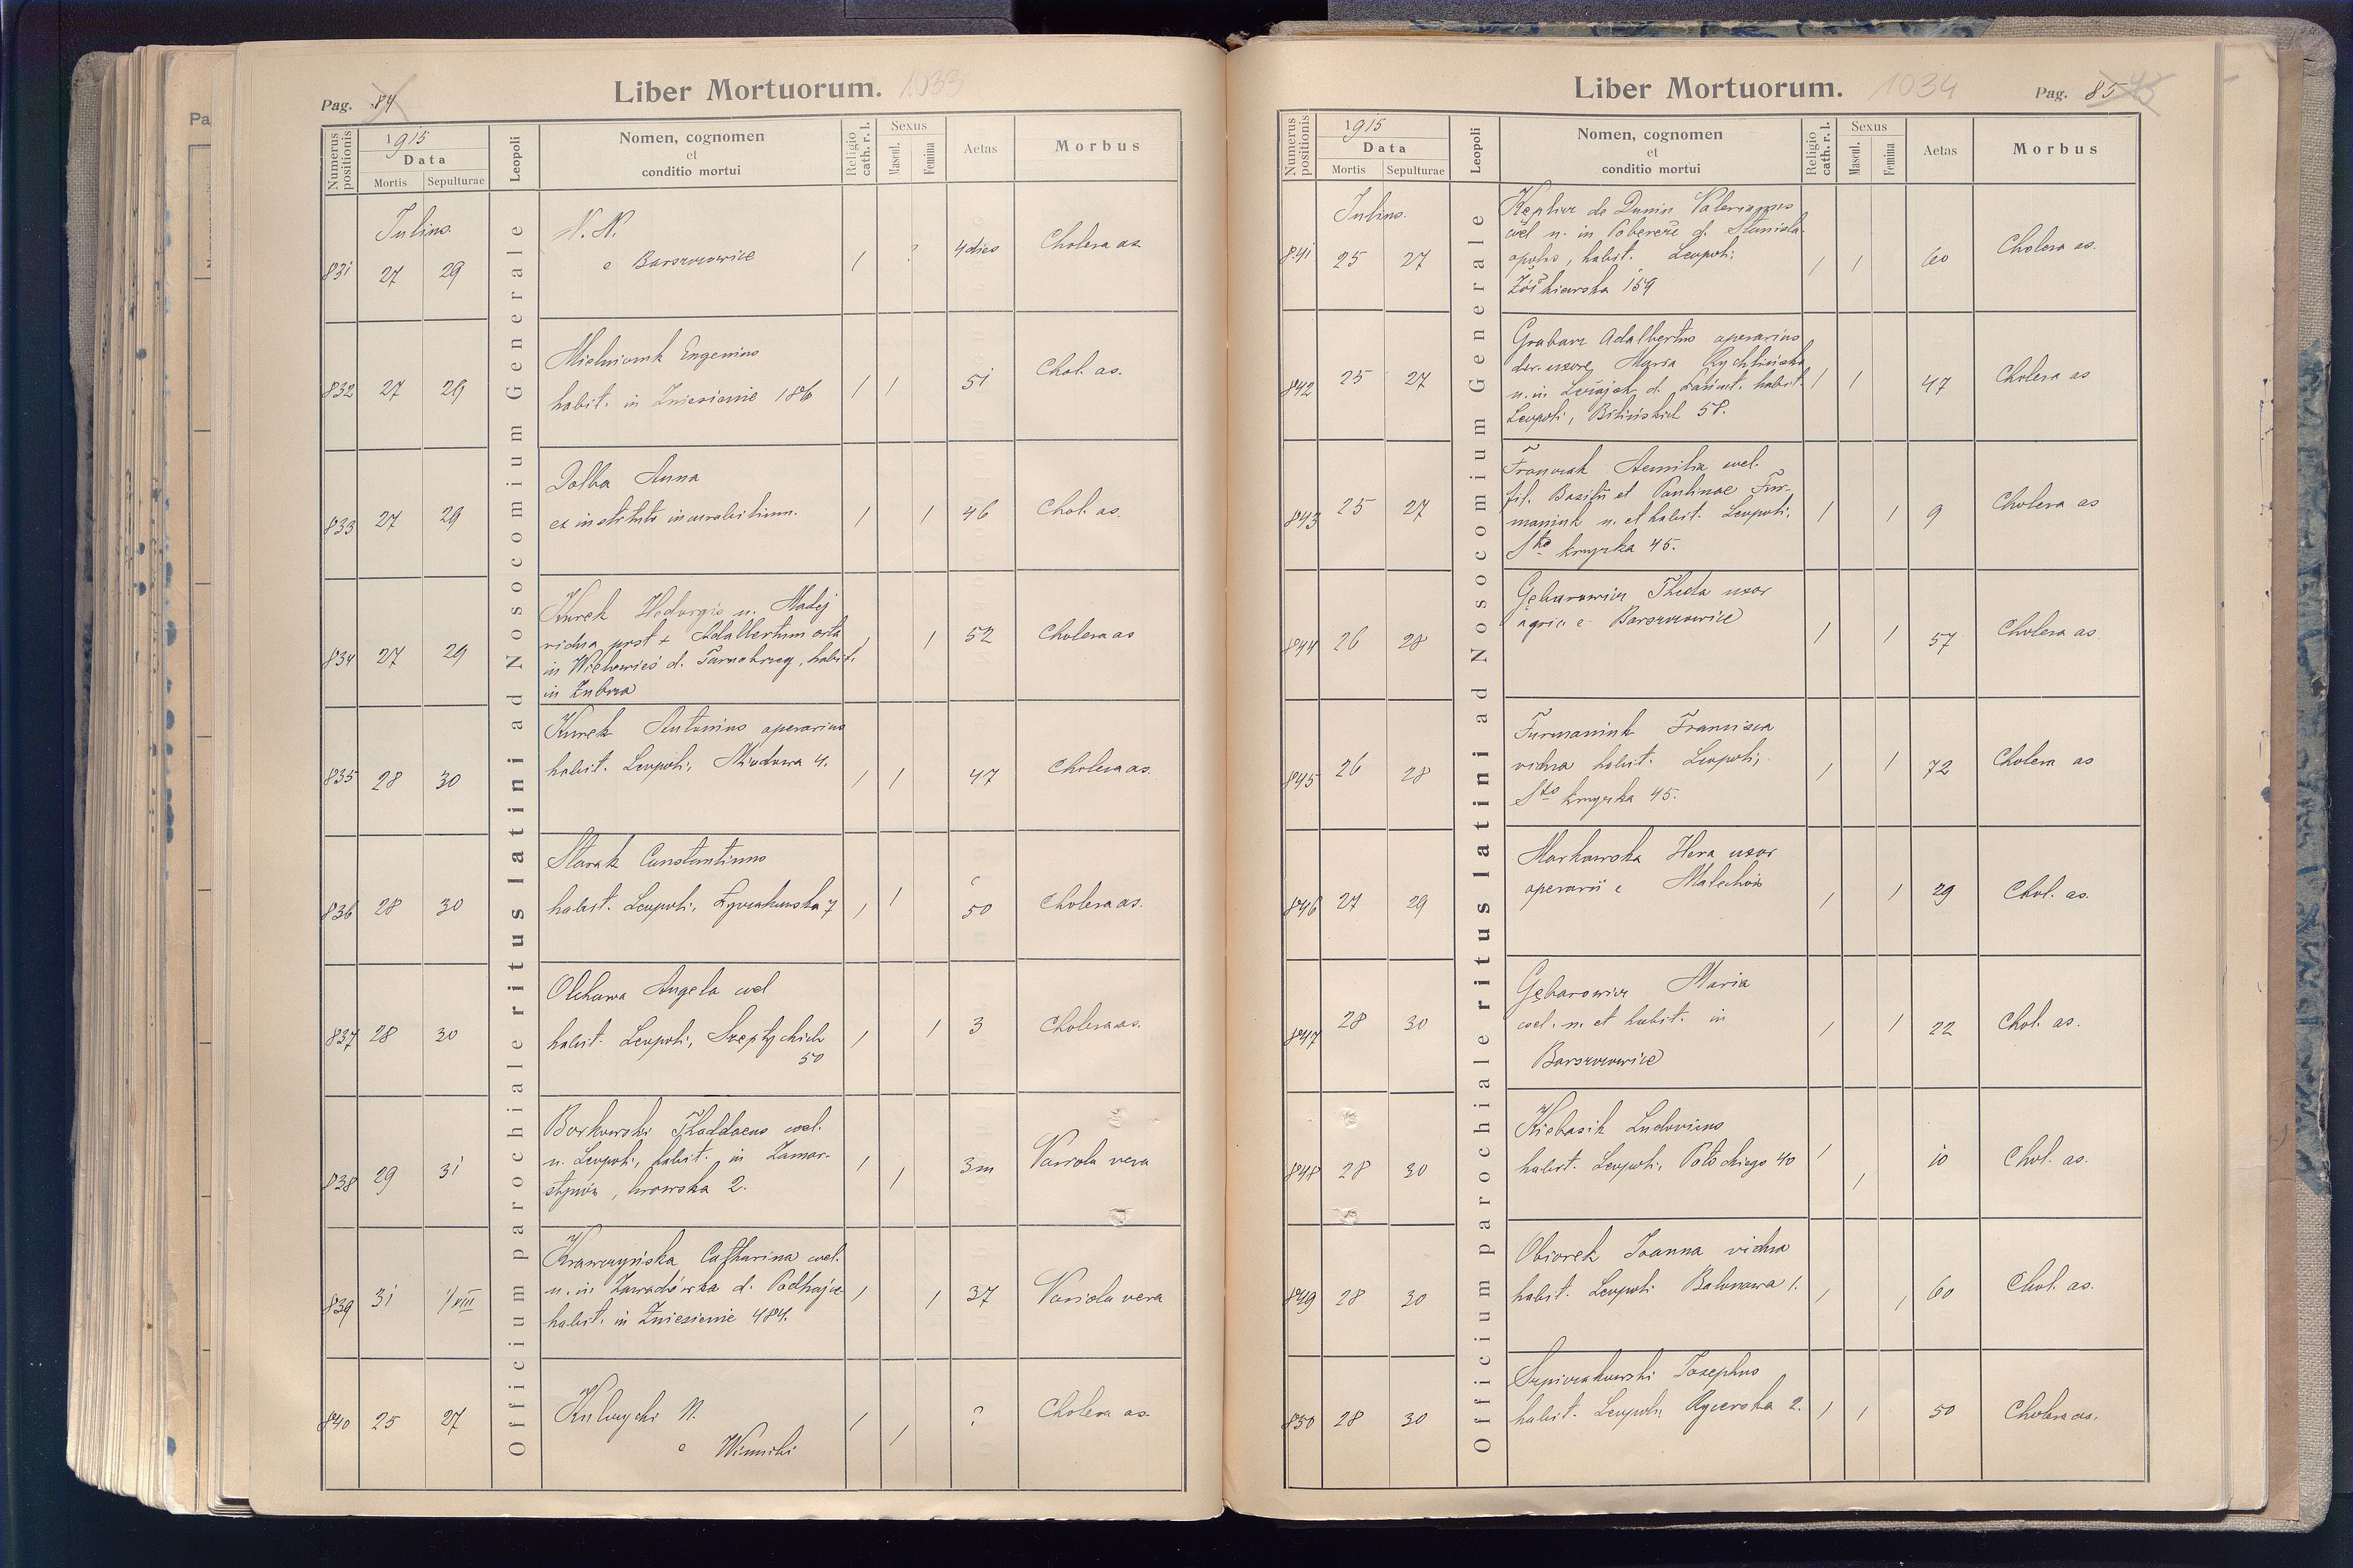 Liber Mortuorum. 1033
Pag. 84
Numerus positionis
1915
Data
Mortis
Sepulturae
Leopoli
Nomen, cognomen
et
conditio mortui
Religio cath. r. l.
Sexus
Mascul.
Femina
Aetas
Morbus
Officium parochiale ritus latini ad Nosocomium Generale
Julius.
831 27 29 N. N. / ? 4 dies Cholera as.
e Barszczowice
832 27 29 Mielniczuk Eugenius / / 51 Chol. as.
habit. in Zniesienie 186
833 27 29 Dolba Anna / / 46 Chol. as.
ex instituto incurabilium.
834 27 29 Kurek Hedvigis n. Madej / / 52 Cholera as
vidua post + Adalbertum orta
in Wielowieś d. Tarnobrzeg, habit.
in Zubrza
835 28 30 Kurek Antonius operarius / / 47 Cholera as.
habit. Leopoli, Miodowa 4.
836 28 30 Starak Constantinus / / c 50 Cholera as.
habit. Leopoli, Łyczakowska 7
837 28 30 Olchawa Angela coel / / 3 Cholera as.
habit. Leopoli, Szeptyckich
50
838 29 31 Borkowski Thaddaeus coel. / / 3m Variola vera
n. Leopoli, habit. in Zamar-
stynów, lwowska 2.
839 31 1/VIII Krawczyńska Catharina coel. / / 37 Variola vera
n. in Zawadówka d. Podhajce
habit. in Zniesienie 484.
840 25 27 Kulczycki N. / / ? Cholera as.
e Winniki
Liber Mortuorum. 1034
Pag. 85
Numerus positionis
1915
Data
Mortis
Sepulturae
Leopoli
Nomen, cognomen
et
conditio mortui
Religio cath. r. l.
Sexus
Mascul.
Femina
Aetas
Morbus
Officium parochiale ritus latini ad Nosocomium Generale
Julius.
841 25 27 de Dunin Valerianus / / 60 Cholera as.
coel n. in d. Stanisla-
opolis, habit. Leopoli,
Żółkiewska 159
842 25 27 Grabarz Adalbertus operarius / / 47 Cholera as
der. uxore Maria Rychlińska
n. in Leżajsk d. Łańcut, habit.
Leopoli, Bilińskich 58.
843 25 27 Franczak Aemilia coel. / / 9 Cholera as
fil. Basilii et Paulinae Fur-
maniuk n. et habit. Leopoli,
Sto krzyska 45.
844 26 28 Gębarowicz Thecla uxor / / 57 Cholera as.
agric. e Barszczowice
845 26 28 Furmaniuk Francisca / / 72 Cholera as
vidua habit. Leopoli,
Sto krzyska 45.
846 27 29 Markowska Hera uxor / / 29 Chol. as.
operarii e Malechów
847 28 30 Gębarowicz Maria / / 22 Chol. as.
coel. n. et habit. in
Barszczowice
848 28 30 Kiebasik Ludovicus / / 10 Chol. as.
habit. Leopoli, Potockiego 40
849 28 30 Obiorek Joanna vidua / / 60 Chol. as.
habit. Leopoli Balonowa 1.
850 28 30 Szpiczakowski Josephus / / 50 Cholera as.
habit. Leopoli, Rycerska 2.